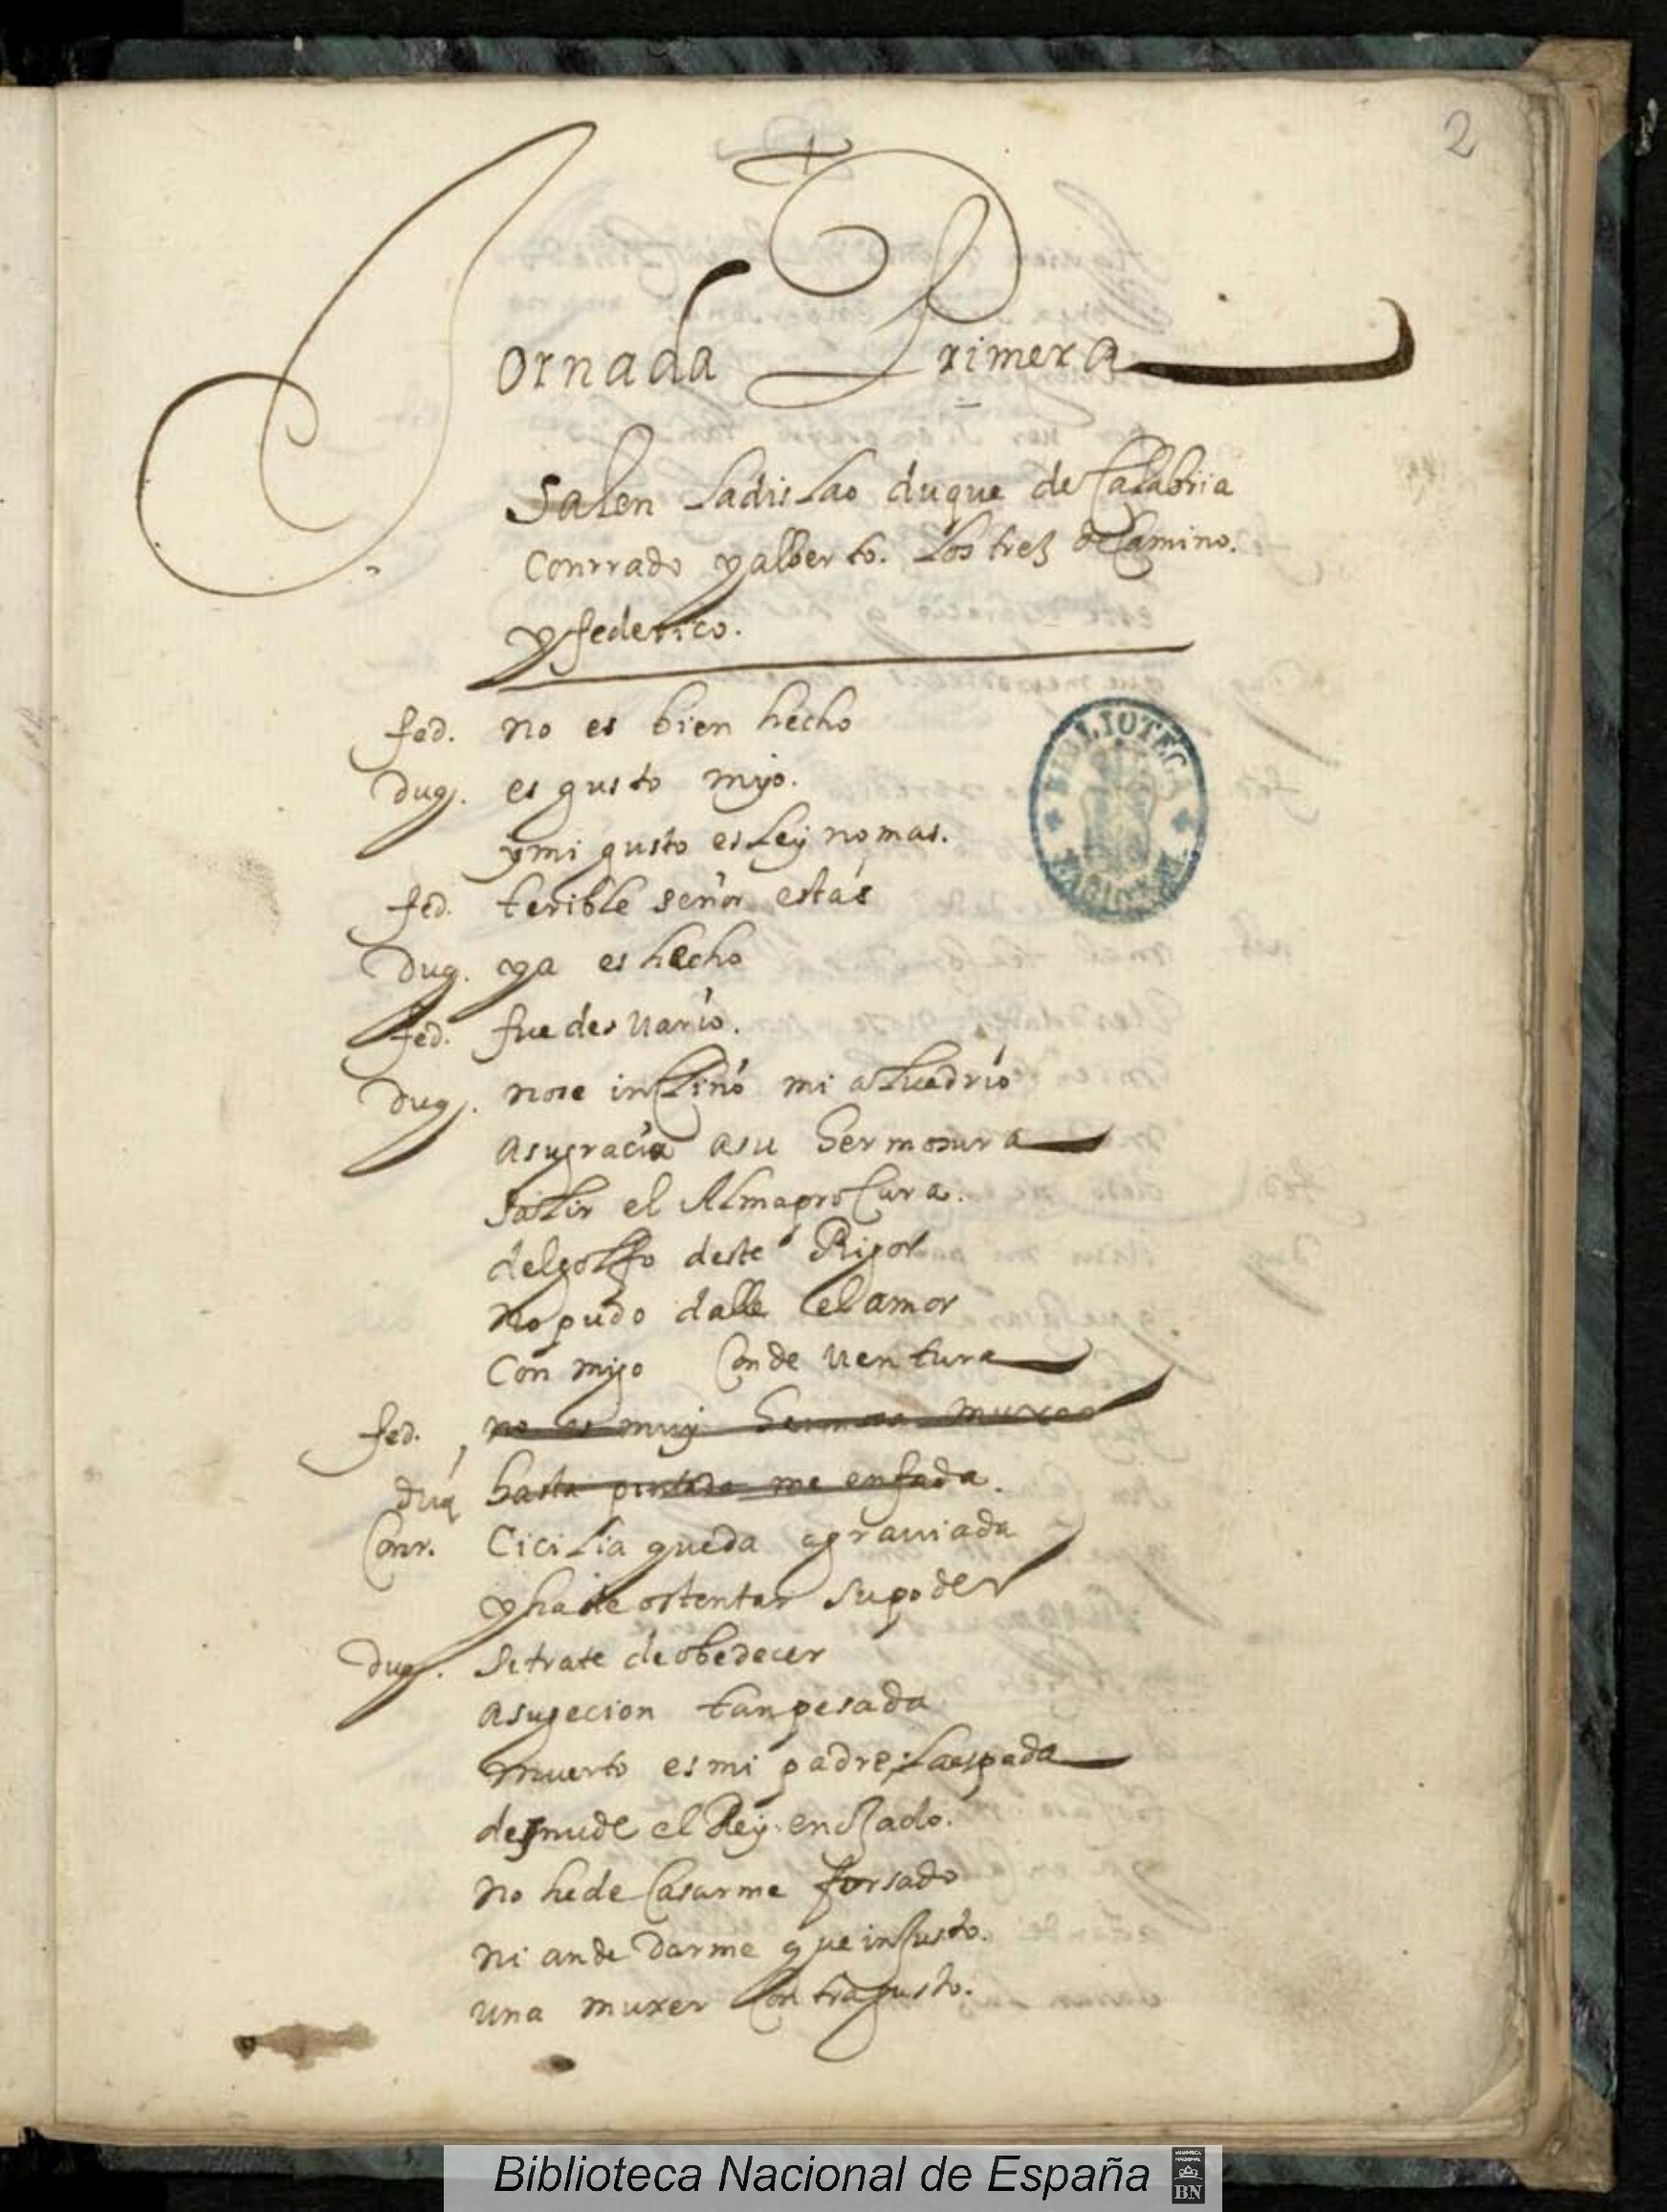 2
Jornada Primera
Salen Ladislao duque de Calabria
Conrrado y alberto. Los tres de Camino.
y federico.
fed. no es bien hecho
Duq. es gusto mijo.
y mi gusto es Ley no mas.
fed. terible señor estás
Duq. ya es hecho
fed. fue des uario.
Duq. nose inclinó mi aluedrío
asugracia asu hermosura
salir el Alma procura.
delgolfo deste Rigor
No pudo dalle el amor
Con migo Conde uentura
fed. no es muy hermosa muxer
duq hasta pintada me enfada.
Conr. Cicilia queda agrauiada
y hade ostentar supoder
Duq. Setrate deobedecer
asugecion tanpesada
muerto es mi padre, Laespada
desnude el Rey. enojado.
No hede Casarme forsado
ni ande Darme que injusto.
una muxer Contragusto.
BIBLIOTECA NACIONAL
Biblioteca Nacional de España
BN